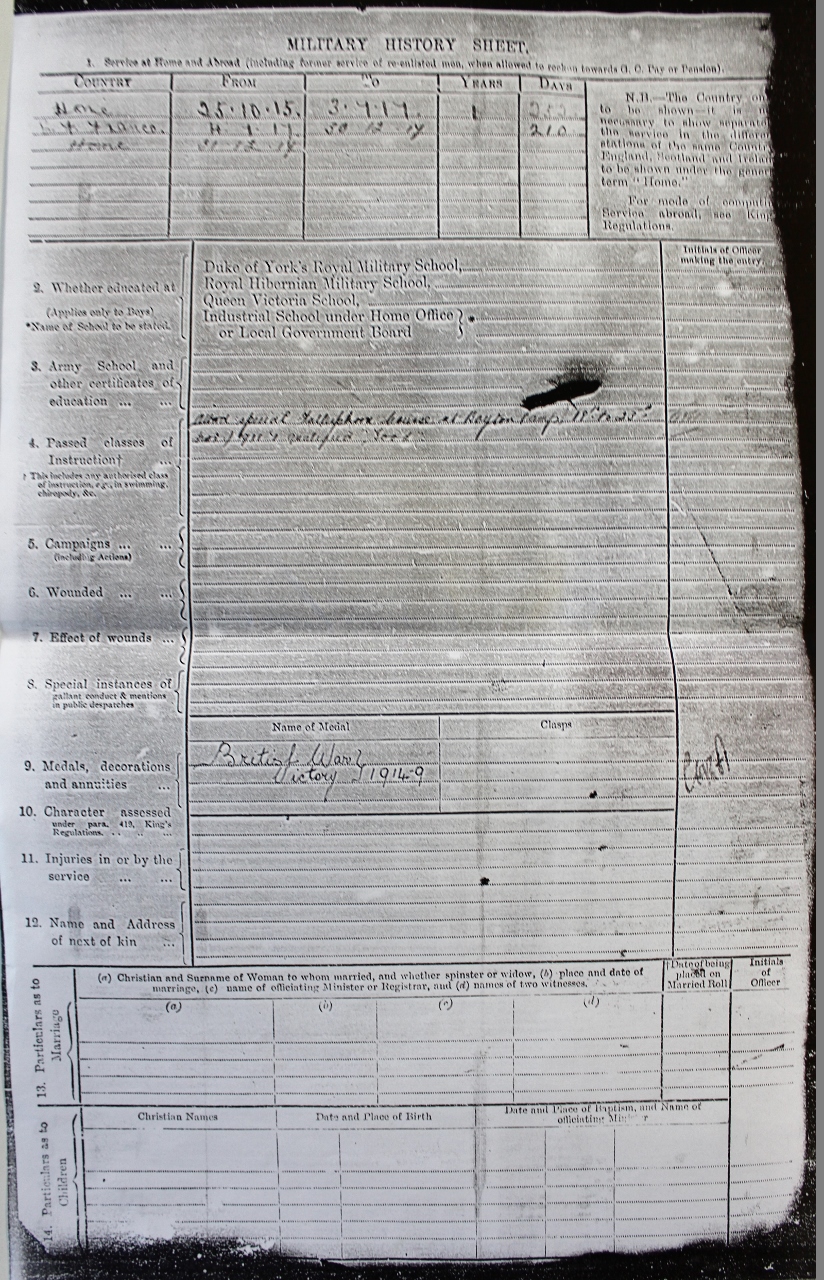 MILITARY HISTORY SHEET.
1. Service at Home and Abroad (including former service of re-enlisted men, when allowed to reckon towards G. C. Pay or Pension).
COUNTRY FROM TO YEARS DAYS
Home 25·10·15. 3·1·17 1
France. 4 1 17 30 12 17 210
Home 31 12 17
N.B.—The Country on
to be shown—it is
necessary to show separat
the service in the differen
stations of the same Count
England, Scotland and Irelan
to be shown under the gener
term "Home."
For mode of computi
Service abroad, see King
Regulations.
Initials of Officer
making the entry.
2. Whether educated at
(Applies only to Boys)
*Name of School to be stated.
Duke of York's Royal Military School,
Royal Hibernian Military School,
Queen Victoria School,
Industrial School under Home Office
or Local Government Board } *
3. Army School and
other certificates of
education ... ...
4. Passed classes of
Instruction† ...
† This includes any authorised class
of instruction, e.g., in swimming,
chiropody, &c.
special Course at Boyton Camp,
qualified
5. Campaigns ... ...
(including Actions)
6. Wounded ... ...
7. Effect of wounds ...
8. Special instances of
gallant conduct & mentions
in public despatches
Name of Medal Clasps
9. Medals, decorations
and annuities ...
British War
Victory 1914-9
10. Character assessed
under para. 419, King's
Regulations. .. .. ..
11. Injuries in or by the
service ... ...
12. Name and Address
of next of kin ...
13. Particulars as to
Marriage
(a) Christian and Surname of Woman to whom married, and whether spinster or widow, (b) place and date of
marriage, (c) name of officiating Minister or Registrar, and (d) names of two witnesses.
Date of being
placed on
Married Roll
Initials
of
Officer
(a) (b) (c) (d)
14. Particulars as to
Children
Christian Names Date and Place of Birth Date and Place of Baptism, and Name of
officiating